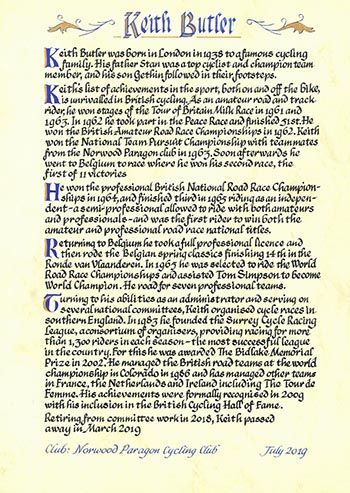 Keith Butler
Keith Butler was born in London in 1938 to a famous cycling
family. His father Stan was a top cyclist and champion team
member, and his son Gethin followed in their footsteps.
Keith's list of achievements in the sport, both on and off the bike,
is unrivalled in British cycling. As an amateur road and track
rider, he won stages of the Tour of Britain Milk Race in 1961 and
1963. In 1962 he took part in the Peace Race and finished 31st. He
won the British Amateur Road Race Championships in 1962. Keith
won the National Team Pursuit Championship with teammates
from the Norwood Paragon club in 1963. Soon afterwards he
went to Belgium to race where he won his second race, the
first of 11 victories
He won the professional British National Road Race Champion-
ships in 1964, and finished third in 1965 riding as an indepen-
dent - a semi-professional allowed to ride with both amateurs
and professionals - and was the first rider to win both the
amateur and professional road race national titles.
Returning to Belgium he took a full professional licence and
then rode the Belgian spring classics finishing 14th in the
Ronde van Vlaanderen. In 1965 he was selected to ride the World
Road Race Championships and assisted Tom Simpson to become
World Champion. He road for seven professional teams.
Turning to his abilities as an administrator and serving on
several national committees, Keith organised cycle races in
southern England. In 1983 he founded the Surrey Cycle Racing
League, a consortium of organisers, providing racing for more
than 1,300 riders in each season - the most successful league
in the country. For this he was awarded The Bidlake Memorial
Prize in 2002. He managed the British road teams at the world
championship in Colorado in 1986 and has managed other teams
in France, the Netherlands and Ireland including The Tour de
Femme. His achievements were formally recognised in 2009
with his inclusion in the British Cycling Hall of Fame.
Retiring from committee work in 2018, Keith passed
away in March 2019
Club: Norwood Paragon Cycling Club July 2019